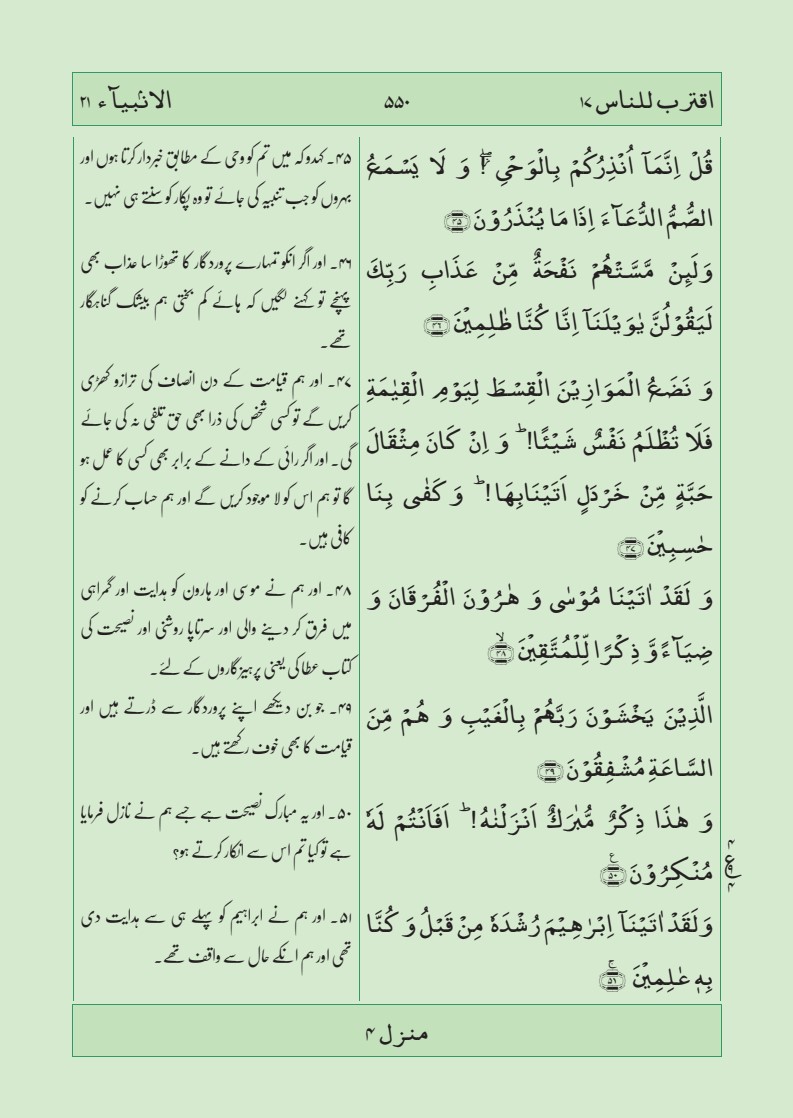 اقترب للناس ۱۷
۵۵۰
الانبیآء ۲۱
قُلْ اِنَّمَآ اُنْذِرُكُمْ بِالْوَحْیِ ۖ٘ وَ لَا یَسْمَعُ
الصُّمُّ الدُّعَآءَ اِذَا مَا یُنْذَرُوْنَ ﴿۴۵﴾
وَلَىِٕنْ مَّسَّتْهُمْ نَفْحَةٌ مِّنْ عَذَابِ رَبِّكَ
لَیَقُوْلُنَّ یٰوَیْلَنَاۤ اِنَّا كُنَّا ظٰلِمِیْنَ ﴿۴۶﴾
وَ نَضَعُ الْمَوَازِیْنَ الْقِسْطَ لِیَوْمِ الْقِیٰمَةِ
فَلَا تُظْلَمُ نَفْسٌ شَیْـًٔا ؕ وَ اِنْ كَانَ مِثْقَالَ
حَبَّةٍ مِّنْ خَرْدَلٍ اَتَیْنَا بِهَا ؕ وَ كَفٰی بِنَا
حٰسِبِیْنَ ﴿۴۷﴾
وَ لَقَدْ اٰتَیْنَا مُوْسٰی وَ هٰرُوْنَ الْفُرْقَانَ وَ
ضِیَآءً وَّ ذِكْرًا لِّلْمُتَّقِیْنَ ﴿ۙ۴۸﴾
الَّذِیْنَ یَخْشَوْنَ رَبَّهُمْ بِالْغَیْبِ وَ هُمْ مِّنَ
السَّاعَةِ مُشْفِقُوْنَ ﴿۴۹﴾
وَ هٰذَا ذِكْرٌ مُّبٰرَكٌ اَنْزَلْنٰهُ ؕ اَفَاَنْتُمْ لَهٗ
مُنْكِرُوْنَ ﴿۵۰﴾
وَلَقَدْ اٰتَیْنَاۤ اِبْرٰهِیْمَ رُشْدَهٗ مِنْ قَبْلُ وَ كُنَّا
بِهٖ عٰلِمِیْنَ ﴿ۚ۵۱﴾
۴ ع ۴
۴۵۔ کہدو کہ میں تم کو وحی کے مطابق خبردار کرتا ہوں اور
بہروں کو جب تنبیہ کی جائے تو وہ پکار کو سنتے ہی نہیں۔
۴۶۔ اور اگر انکو تمہارے پروردگار کا تھوڑا سا عذاب بھی
پہنچے تو کہنے لگیں کہ ہائے کم بختی ہم بیشک گناہگار
تھے۔
۴۷۔ اور ہم قیامت کے دن انصاف کی ترازو کھڑی
کریں گے تو کسی شخص کی ذرا بھی حق تلفی نہ کی جائے
گی۔ اور اگر رائی کے دانے کے برابر بھی کسی کا عمل ہو
گا تو ہم اس کو لا موجود کریں گے اور ہم حساب کرنے کو
کافی ہیں۔
۴۸۔ اور ہم نے موسی اور ہارون کو ہدایت اور گمراہی
میں فرق کر دینے والی اور سرتاپا روشنی اور نصیحت کی
کتاب عطا کی یعنی پرہیزگاروں کے لئے۔
۴۹۔ جو بن دیکھے اپنے پروردگار سے ڈرتے ہیں اور
قیامت کا بھی خوف رکھتے ہیں۔
۵۰۔ اور یہ مبارک نصیحت ہے جسے ہم نے نازل فرمایا
ہے تو کیا تم اس سے انکار کرتے ہو؟
۵۱۔ اور ہم نے ابراہیم کو پہلے ہی سے ہدایت دی
تھی اور ہم انکے حال سے واقف تھے۔
منزل ۴